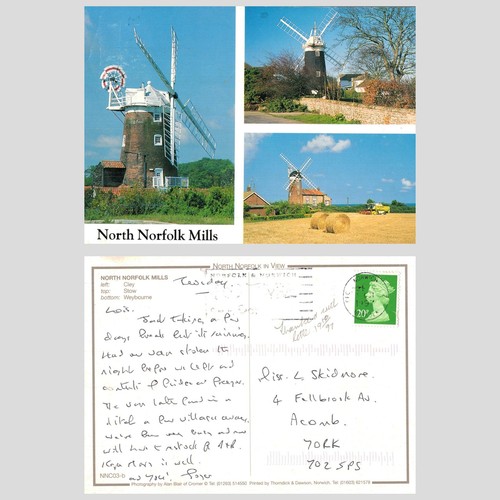 North Norfolk Mills
NORTH NORFOLK IN VIEW
NORTH NORFOLK MILLS
left: Cley
top: Stow
bottom: Weybourne
Tuesday
NORWICH
20p
Lois.
Just taking a few
days break but it's raining.
Had our van stolen the
night before we left and
contents of
He was later found in a
ditch a few villages away.
We're been very busy and now
will have to restock
Hope Mum is well.
Miss. L Skidmore.
4 Fellbrook Av.
Acomb.
YORK
YO2 5PS
NNC03-b
Photography by Alan Blair of Cromer
Printed by Thorndick & Dawson, Norwich.